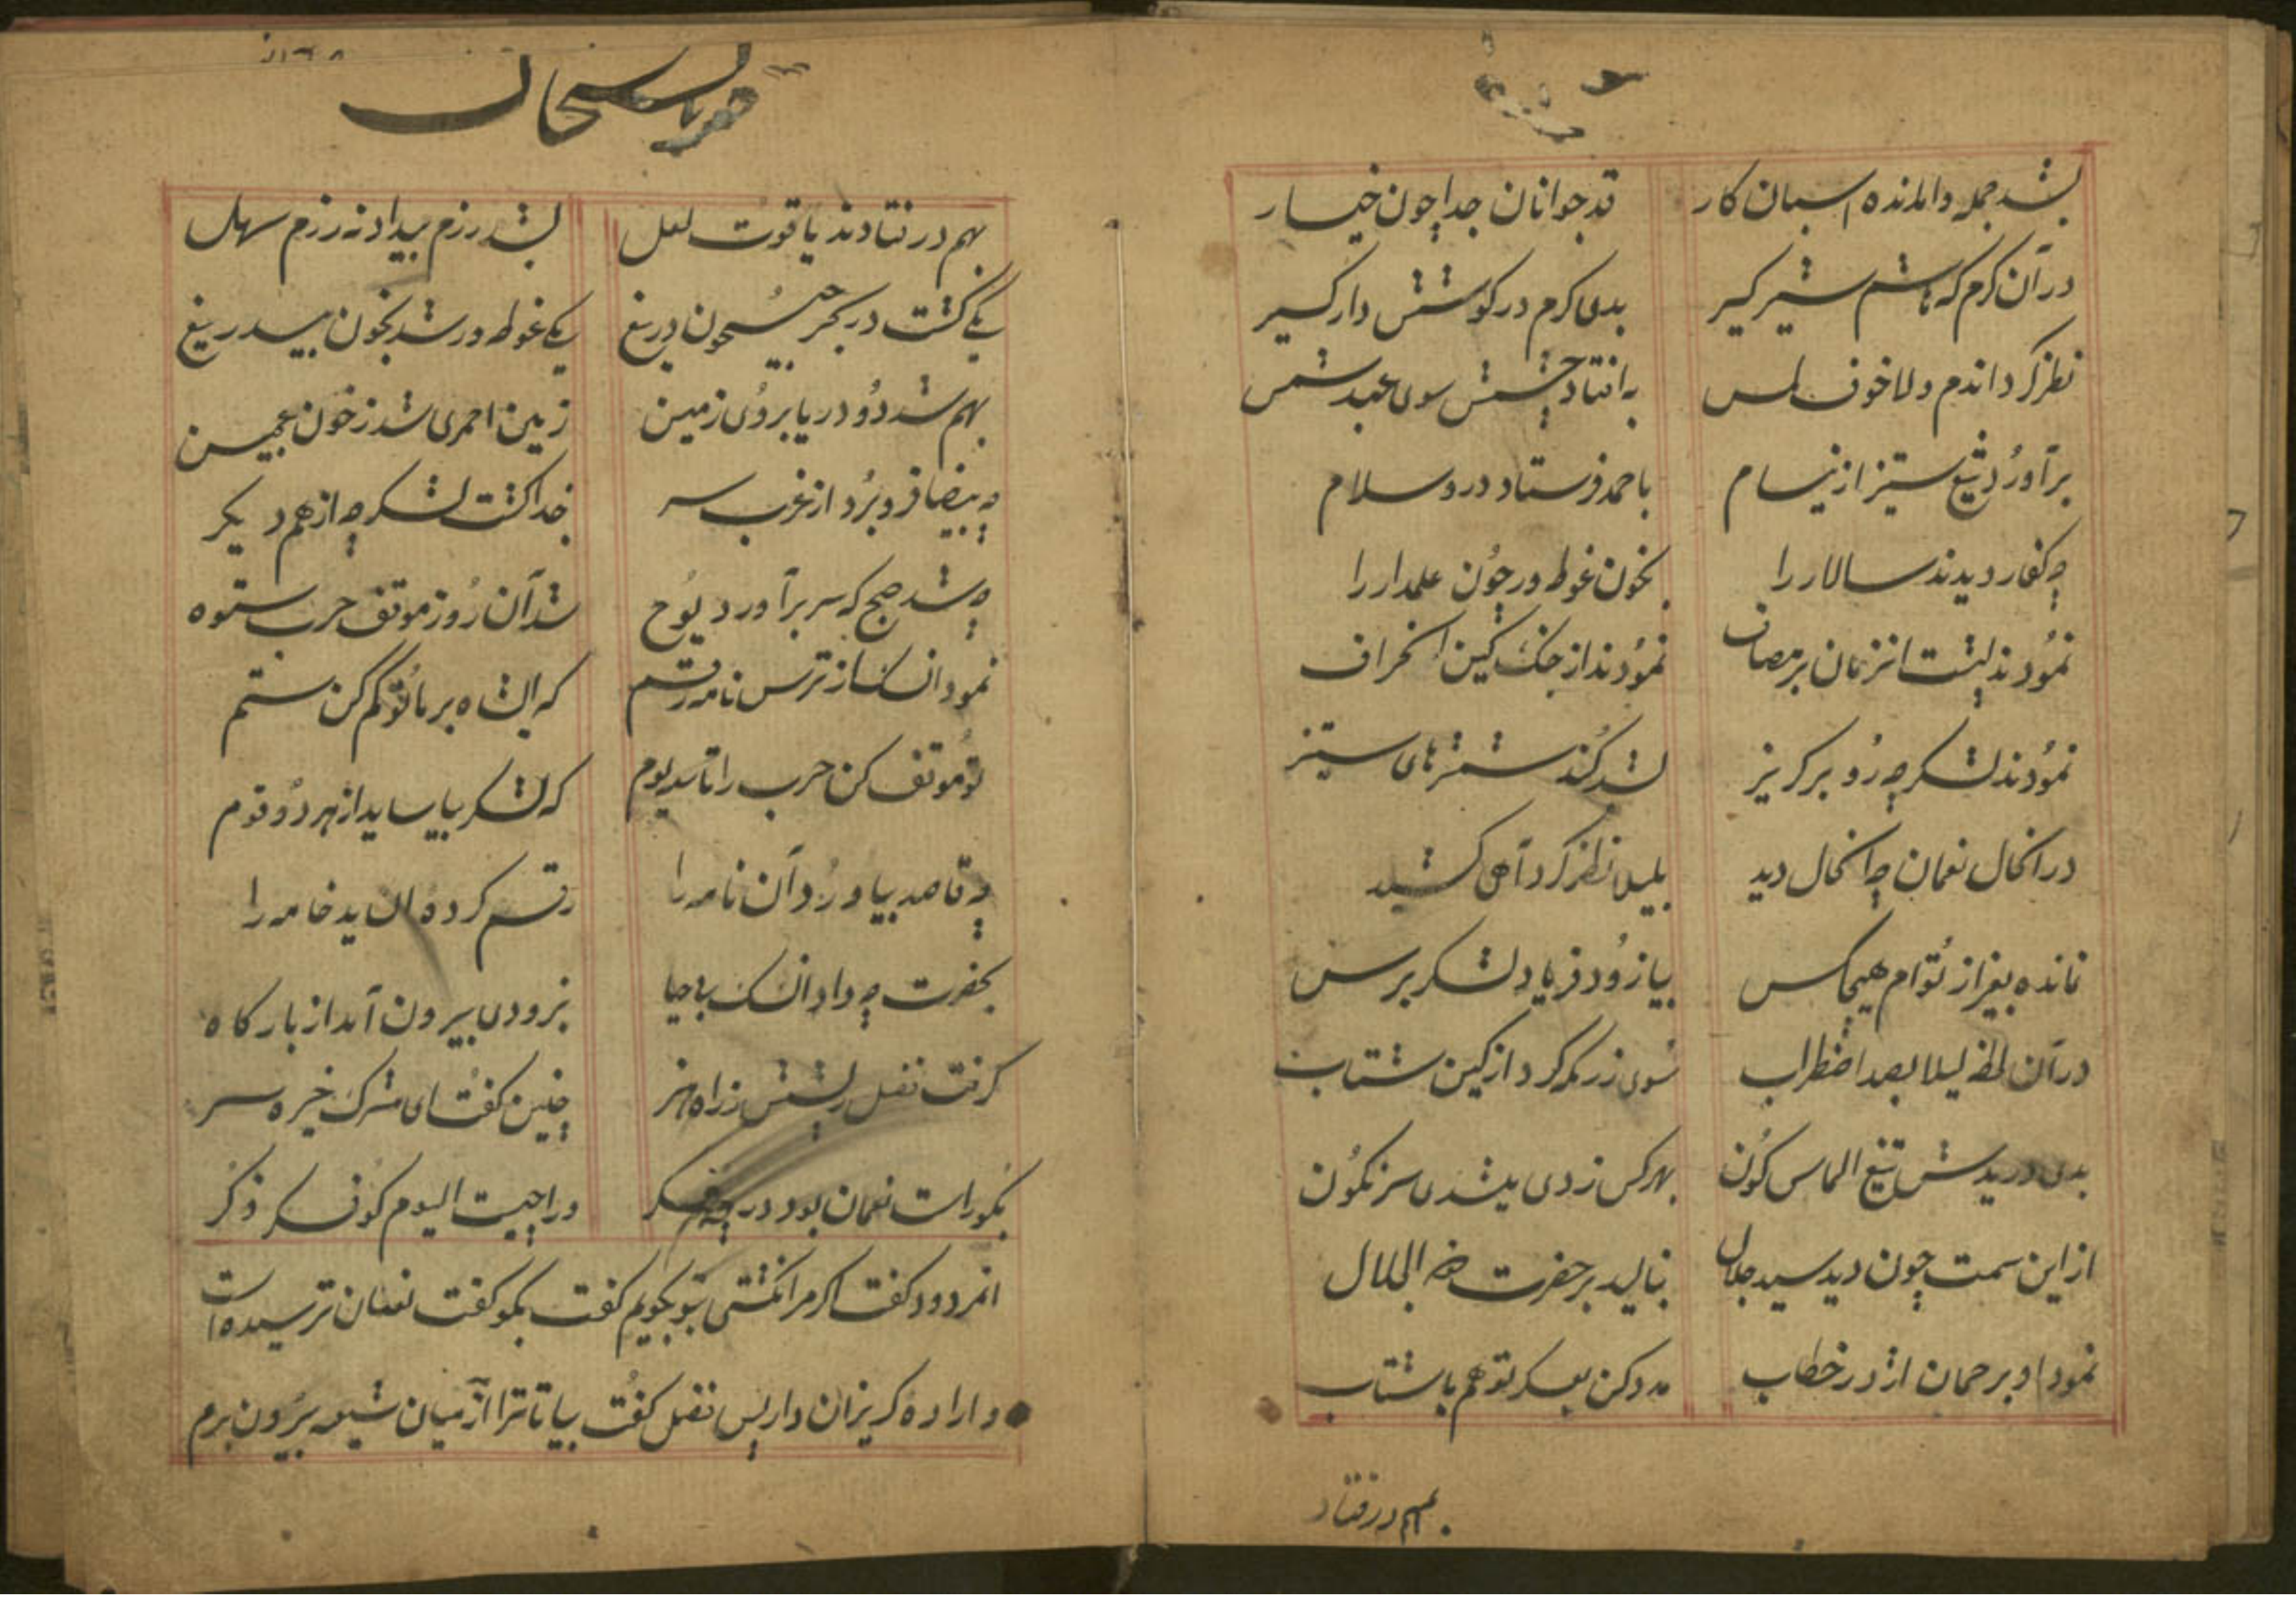 بشد جمله وامانده اسبان کار قد جوانان جدا چون خیار
در آن کرم که هاشم شیر کیر بدی کرم در کوشش دار کیر
نظر کرد اندم ولا خوف لمس به افتاد چشمش سوی عبد شمس
برآورد تیغ ستیز از نیام باحمد فرستاد درود سلام
چه کفار دیدند سالار را بخون غوطه ور چون علمدار را
نمودند پشت انزمان بر مصاف نمودند از جنک کین انحراف
نمودند لشکر چه رو بر کریز بشد کند شمشیرهای ستیز
در انحال نعمان چه انحال دید بلیلا نظر کرد آهی کشید
نمانده بغیر از توام هیچکس بیا زود فریاد لشکر برس
در آن لحظه لیلا بصد اضطراب سوی رزمکه کرد از کین شتاب
بدی در یدش تیغ الماس کون بهر کس زدی میشدی سرنکون
از این سمت چون دید سید جلال بنالید بر حضرت ذو الجلال
نمود او بر حمان اژدر خطاب مدد کن بعسکر تو هم با شتاب
بهم در فتاد
بهم در فتادند یاقوت لعل بشد رزم بیداد نه رزم سهل
یکی کشت در بحر جیحون دریغ یکی غوطه ور شد بخون بیدریغ
بهم شد دو دریا بروی زمین زمین احمری شد ز خون عجین
چه بیضا فرو برد از غرب سر جدا کشت لشکر چه از هم دیکر
چه شد صبح که سر برآورد یوح شد آن روز موقف حرب ستوه
نمود از ترس نامه رقم که ایشاه بر ما تو کم کن ستم
تو موقف کن حرب را تا سه یوم که لشکر بیاساید از هر دو قوم
چه قاصد بیاورد آن نامه را رقم کرده ان ید خامه را
بحضرت چه داد بزودی بیرون آمد از بارکاه
کرفت نفل ریشش ز راه هنر چنین کفت ای مشرک خیره سر
بکو راست نعمان بود در چه فکر ورا چیست الیوم کو فکر ذکر
انمردود کفت اکر مرا نکشتی بتو بکویم کفت بکو کفت نعمان ترسیده است
و اراده کریزان دارد پس نفل کفت بیا تا ترا از میان شیعه بیرون برم